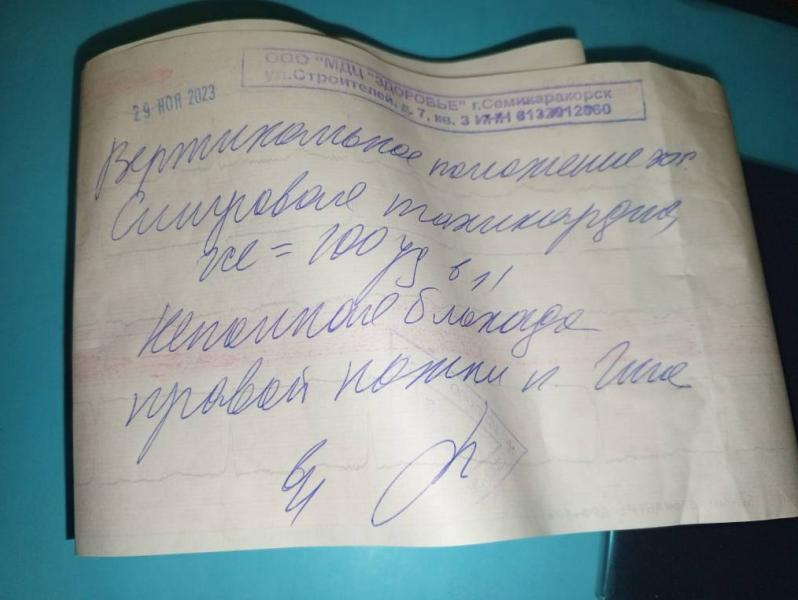 29 НОЯ 2023
ООО "МДЦ "ЗДОРОВЬЕ" г.Семикаракорск
ул.Строителей, д. 7, кв. 3 ИНН 6132012060
Вертикальное положение эос.
Синусовая тахикардия,
чсс = 100 уд в 1'
Неполная блокада
правой ножки п. Гиса